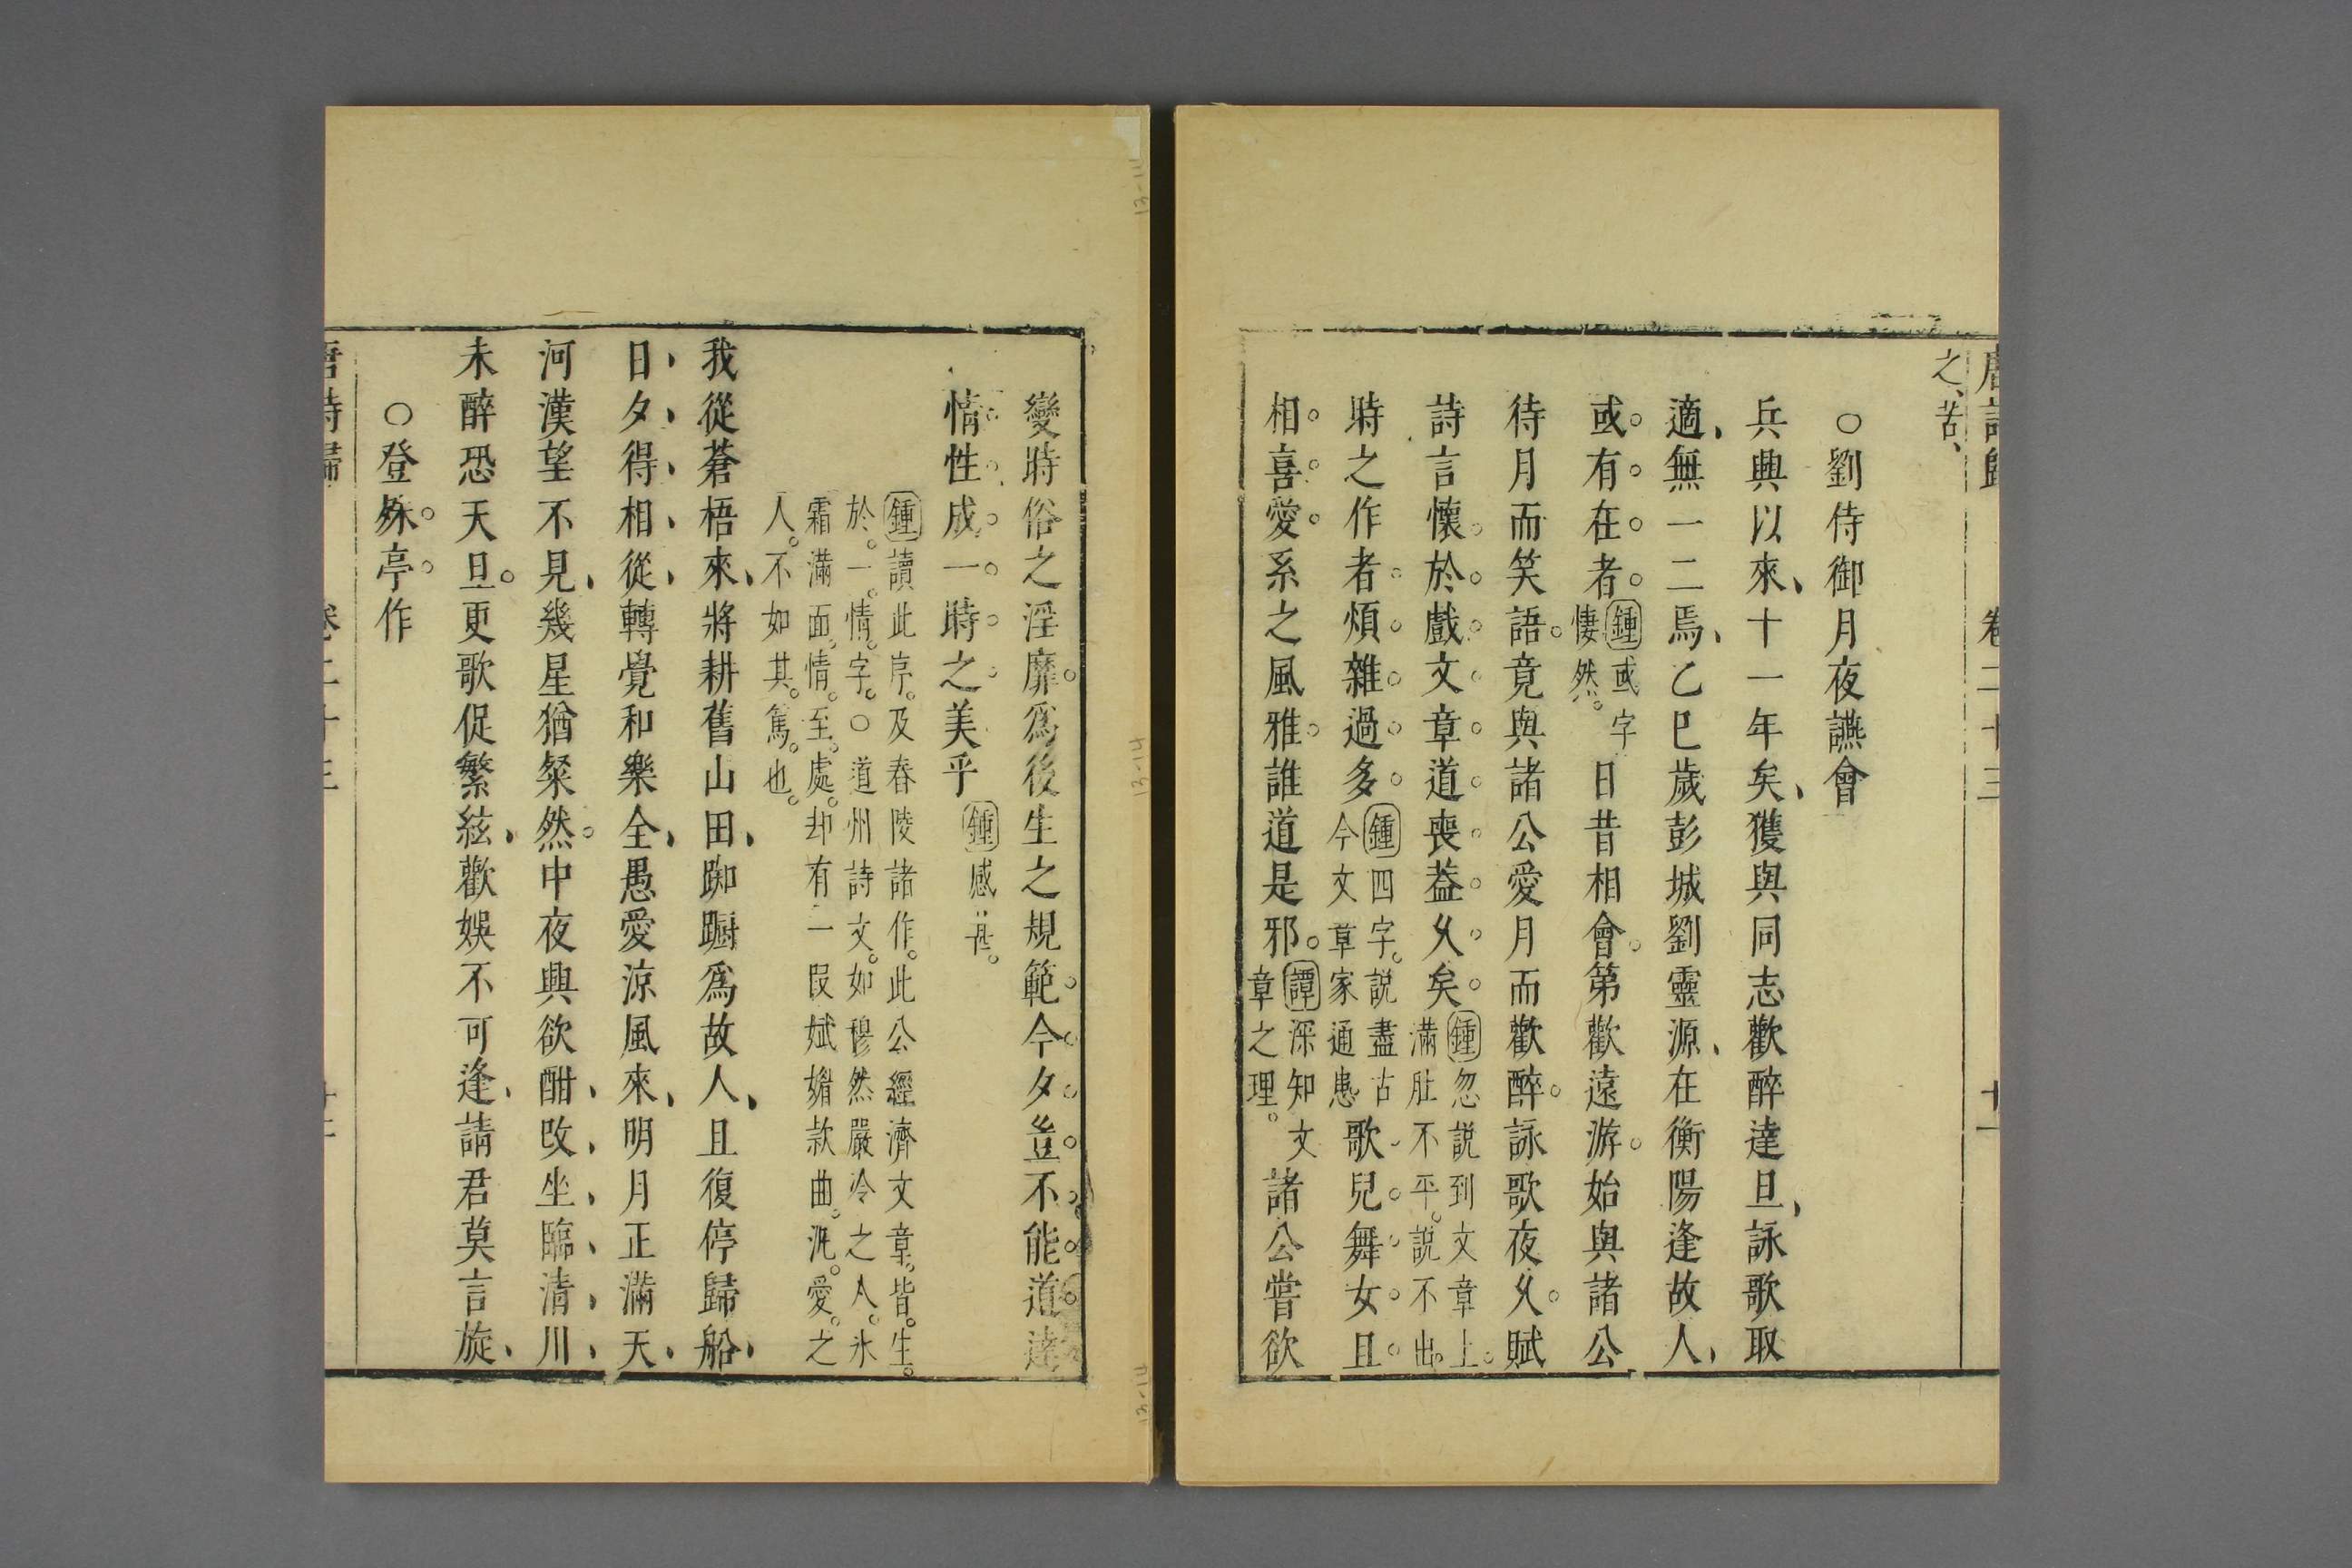 唐詩歸 卷二十三 十一
之苦
○劉侍御月夜讌會
兵興以來十一年矣獲與同志歡醉達旦詠歌取
適無一二焉乙巳歲彭城劉靈源在衡陽逢故人
或有在者鍾或字悽然日昔相會第歡遠游始與諸公
待月而笑語竟與諸公愛月而歡醉詠歌夜久賦
詩言懷於戲文章道喪葢久矣鍾忽說到文章上滿肚不平說不出
時之作者煩雜過多鍾四字說盡古今文章家通患歌兒舞女且
相喜愛系之風雅誰道是邪譚深知文章之理諸公嘗欲
變時俗之淫靡爲後生之規範今夕豈不能道達
情性成一時之美乎鍾感甚
鍾讀此序及春陵諸作此公經濟文章皆生
於一情字○道州詩文如穆然嚴冷之人氷
霜滿面情至處却有一段娬媚款曲溉愛之
人不如其篤也
我從蒼梧來將耕舊山田踟躕爲故人且復停歸船
日夕得相從轉覺和樂全愚愛涼風來明月正滿天
河漢望不見幾星猶粲然中夜興欲酣改坐臨清川
未醉恐天旦更歌促繁絃歡娛不可逢請君莫言旋
○登殊亭作
唐詩歸 卷二十三 十二